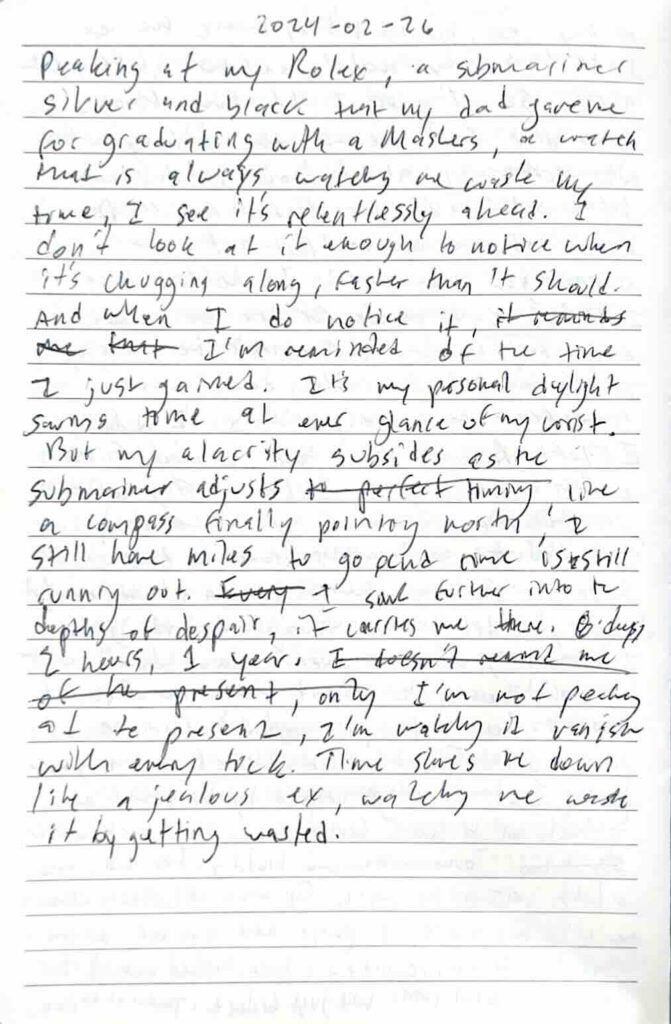 2024-02-26
Peaking at my Rolex, a submariner
silver and black that my dad gave me
for graduating with a Masters, a watch
that is always watching me waste my
time, I see it's relentlessly ahead. I
don't look at it enough to notice when
it's chugging along, faster than it should.
And when I do notice it, it reminds
me that I'm reminded of the time
I just gained. It's my personal daylight
savings time at ever glance of my wrist.
But my alacrity subsides as the
submariner adjusts to perfect timing like
a compass finally pointing north, I
still have miles to go and time is still
running out. Every I sink further into the
depths of despair, it carries me there. 6 days
2 hours, 1 year. I doesn't remind me
of the present, only I'm not peeking
at the present, I'm watching it vanish
with every tick. Time stares me down
like a jealous ex, watching me waste
it by getting wasted.